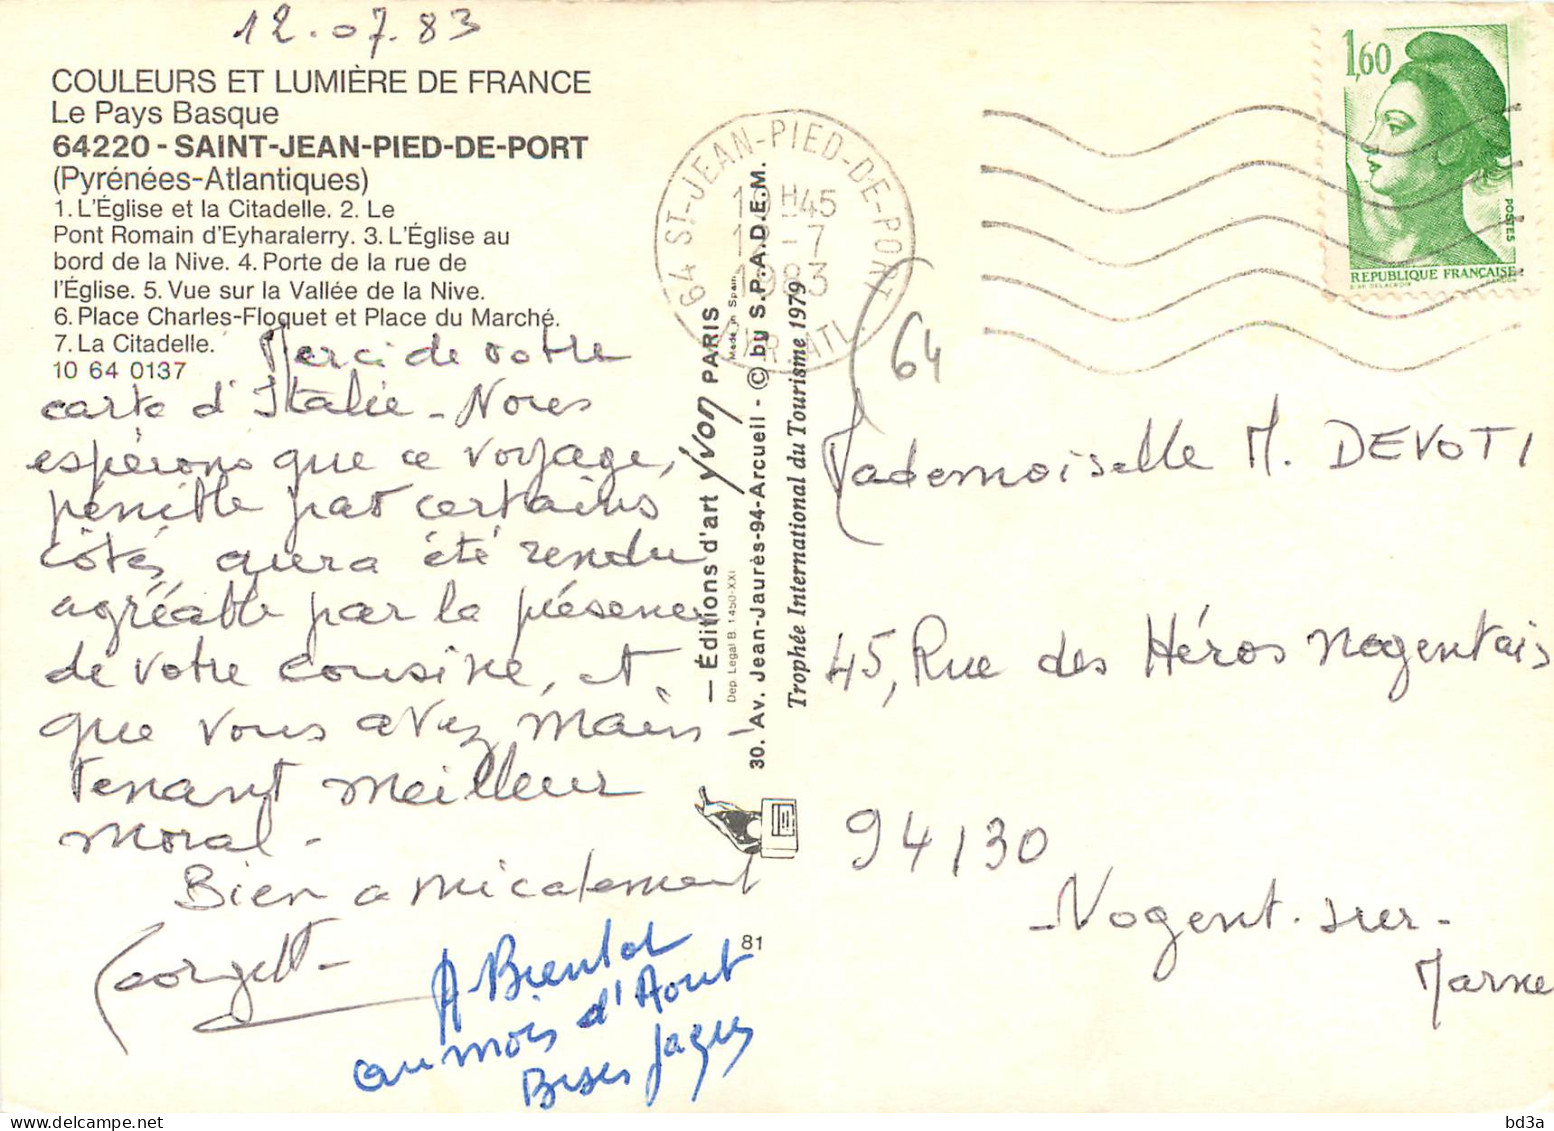 12.07.83
COULEURS ET LUMIÈRE DE FRANCE
Le Pays Basque
64220 - SAINT-JEAN-PIED-DE-PORT
(Pyrénées-Atlantiques)
1. L'Église et la Citadelle. 2. Le
Pont Romain d'Eyharalerry. 3. L'Église au
bord de la Nive. 4. Porte de la rue de
l'Église. 5. Vue sur la Vallée de la Nive.
6. Place Charles-Floquet et Place du Marché.
7. La Citadelle.
10 64 0137
Merci de votre
carte d'Italie - Nous
espérons que ce voyage,
pénible par certains
côtés, aura été rendu
agréable par la présence
de votre cousine, et
que vous avez main-
tenant meilleur
moral -
Bien amicalement
Georgett
A Bientot
au mois d'Aout
Bises
81
— Éditions d'art yvon PARIS
Made in Spain
Dep. Legal B. 1450-XXI
30. Av. Jean-Jaurès-94-Arcueil - © by S.P.A.D.E.M.
Trophée International du Tourisme 1979
64 ST-JEAN-PIED-DE-PORT
H45
-7
1983
1,60
POSTES
REPUBLIQUE FRANÇAISE
D'AP. DELACROIX
GANDON
64
Mademoiselle M. DEVOTI
45, Rue des Héros Nogentais
94130
-Nogent-sur-
Marne
bd3a